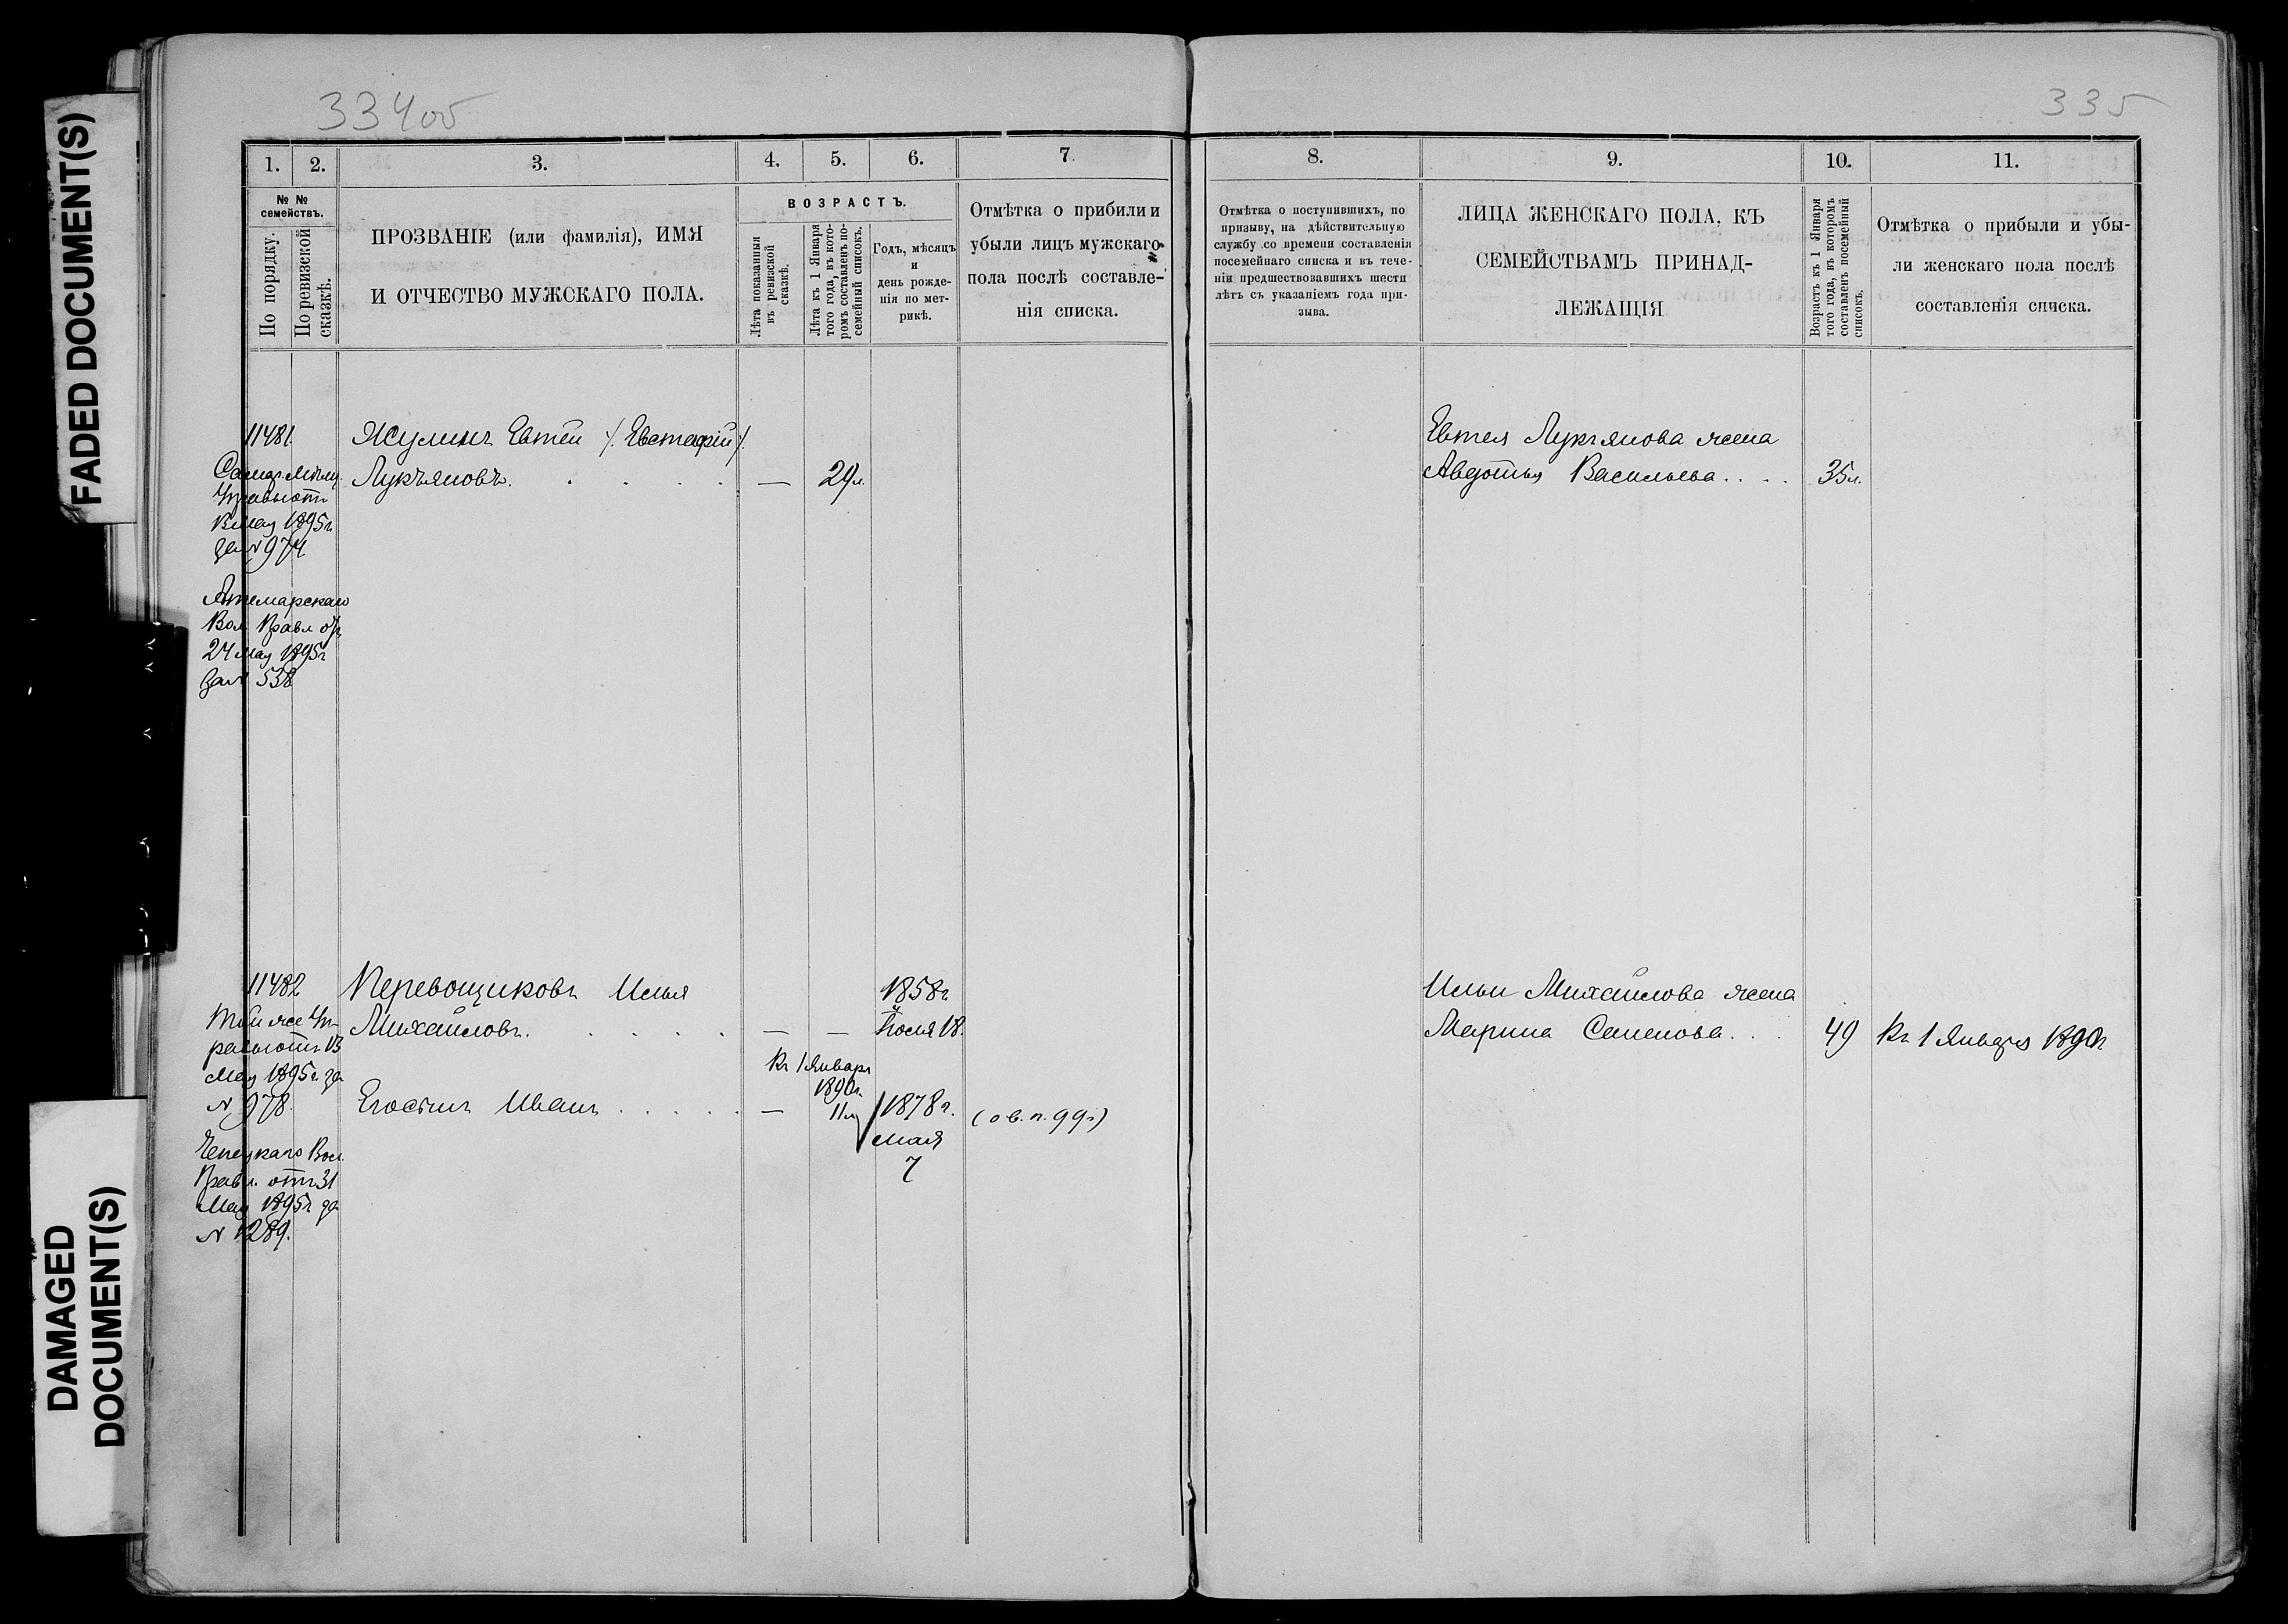 FADED DOCUMENT(S)
DAMAGED
DOCUMENT(S)
334об
1. 2. 3. 4. 5. 6. 7
№ №
семействъ.
По порядку.
По ревизской
сказкѣ.
ПРОЗВАНІЕ (или фамилія), ИМЯ
И ОТЧЕСТВО МУЖСКАГО ПОЛА.
ВОЗРАСТЪ.
Лѣта показанія
въ ревизской
сказкѣ.
Лѣта къ 1 Января
того года, въ кото-
ромъ составленъ по-
семейный списокъ.
Годъ, мѣсяцъ
и
день рожде-
нія по мет-
рикѣ.
Отмѣтка о прибили и
убыли лицъ мужскаго
пола послѣ составле-
нія списка.
11481
Самар. Мѣщ.
Управы отъ
13 Мая 1895г.
за N 974
Атемарскаго
Вол. Правл. отъ
24 Мая 1895г
за N 538
Жулинъ Евтей /. Евстафій /.
Лукьяновъ. . . . . — 29 л.
11482
Той же Уп-
равы отъ 13
Мая 1895г. за
N 978.
Вол.
Правл. отъ 31
Мая 1895г за
N 1289.
Перевощиковъ Илья 1858г
Михайловъ. . . . . — — Іюля 18.
Къ 1 Января
1890г.
Егосынъ Иванъ . . . . . — 11л 1878г. (о в. п. 99г)
Мая
7
335
8. 9. 10. 11.
Отмѣтка о поступившихъ, по
призыву, на дѣйствительную
службу со времени составленія
посемейнаго списка и въ тече-
ніи предшествовавшихъ шести
лѣтъ съ указаніемъ года при-
зыва.
ЛИЦА ЖЕНСКАГО ПОЛА, КЪ
СЕМЕЙСТВАМЪ ПРИНАД-
ЛЕЖАЩІЯ
Возрастъ къ 1 Января
того года, въ которомъ
составленъ посемейный
списокъ.
Отмѣтка о прибыли и убы-
ли женскаго пола послѣ
составленія списка.
Евтея Лукьянова жена
Авдотья Васильева . . . . 35 л.
Ильи Михайлова жена
Марина Семенова . . . 49 Къ 1 Января 1890г